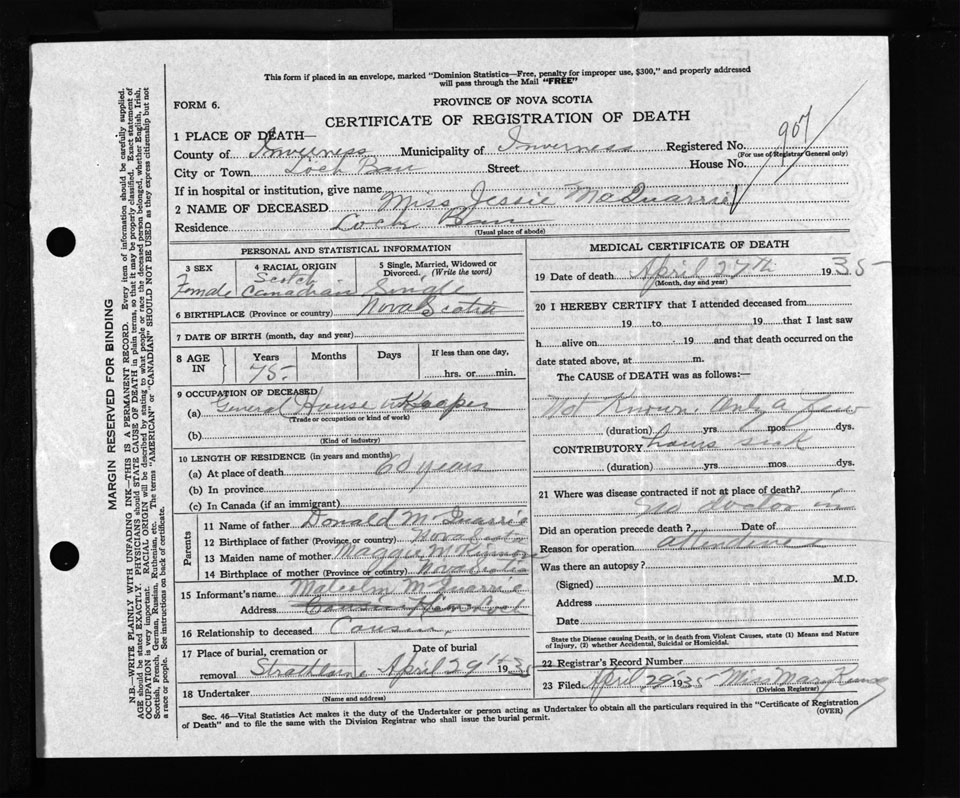 This form if placed in an envelope, marked "Dominion Statistics—Free, penalty for improper use, $300," and properly addressed
will pass through the Mail "FREE"
FORM 6.
PROVINCE OF NOVA SCOTIA
CERTIFICATE OF REGISTRATION OF DEATH
907
1 PLACE OF DEATH—
County of Inverness Municipality of Inverness Registered No.
(For use of Registrar General only)
City or Town Loch Ban Street House No.
If in hospital or institution, give name
2 NAME OF DECEASED Miss Jessie McQuarrie
Residence Loch Ban
(Usual place of abode)
PERSONAL AND STATISTICAL INFORMATION
3 SEX 4 RACIAL ORIGIN 5 Single, Married, Widowed or Divorced. (Write the word)
Female Scotch Canadian Single
6 BIRTHPLACE (Province or country) Nova Scotia
7 DATE OF BIRTH (month, day and year)
8 AGE IN Years Months Days If less than one day,
75 hrs. or min.
9 OCCUPATION OF DECEASED
(a) General House Keeper
(Trade or occupation or kind of work)
(b)
(Kind of industry)
10 LENGTH OF RESIDENCE (in years and months)
(a) At place of death 60 years
(b) In province
(c) In Canada (if an immigrant)
Parents
11 Name of father Donald McQuarrie
12 Birthplace of father (Province or country) Nova Scotia
13 Maiden name of mother Maggie McKinnon
14 Birthplace of mother (Province or country) Nova Scotia
15 Informant's name Malcolm McQuarrie
Address
16 Relationship to deceased Cousin
17 Place of burial, cremation or removal Date of burial
Strathlorne April 29th 1935
18 Undertaker
(Name and address)
MEDICAL CERTIFICATE OF DEATH
19 Date of death April 27th 1935
(Month, day and year)
20 I HEREBY CERTIFY that I attended deceased from
19 to 19 that I last saw
h alive on 19 and that death occurred on the
date stated above, at m.
The CAUSE of DEATH was as follows:—
Not Known. Only a few
(duration) yrs. mos. dys.
CONTRIBUTORY hours sick
(duration) yrs. mos. dys.
21 Where was disease contracted if not at place of death?
No doctor in
Did an operation precede death? Date of
Reason for operation attendence
Was there an autopsy?
(Signed) M.D.
Address
Date
State the Disease causing Death, or in death from Violent Causes, state (1) Means and Nature
of Injury, (2) whether Accidental, Suicidal or Homicidal.
22 Registrar's Record Number
23 Filed April 29 1935 Miss Mary
(Division Registrar)
Sec. 46—Vital Statistics Act makes it the duty of the Undertaker or person acting as Undertaker to obtain all the particulars required in the "Certificate of Registration
of Death" and to file the same with the Division Registrar who shall issue the burial permit. (OVER)
MARGIN RESERVED FOR BINDING
N.B.—WRITE PLAINLY WITH UNFADING INK—THIS IS A PERMANENT RECORD. Every item of information should be carefully supplied.
AGE should be stated EXACTLY. PHYSICIANS should STATE CAUSE OF DEATH in plain terms, so that it may be properly classified. Exact statement of
OCCUPATION is very important. RACIAL ORIGIN will be described by stating to what people or race the deceased person belonged, whether English, Irish,
Scottish, French, German, Russian, Ruthenian, etc. The terms "AMERICAN" or "CANADIAN" SHOULD NOT BE USED as they express citizenship but not
a race or people. See instructions on back of certificate.